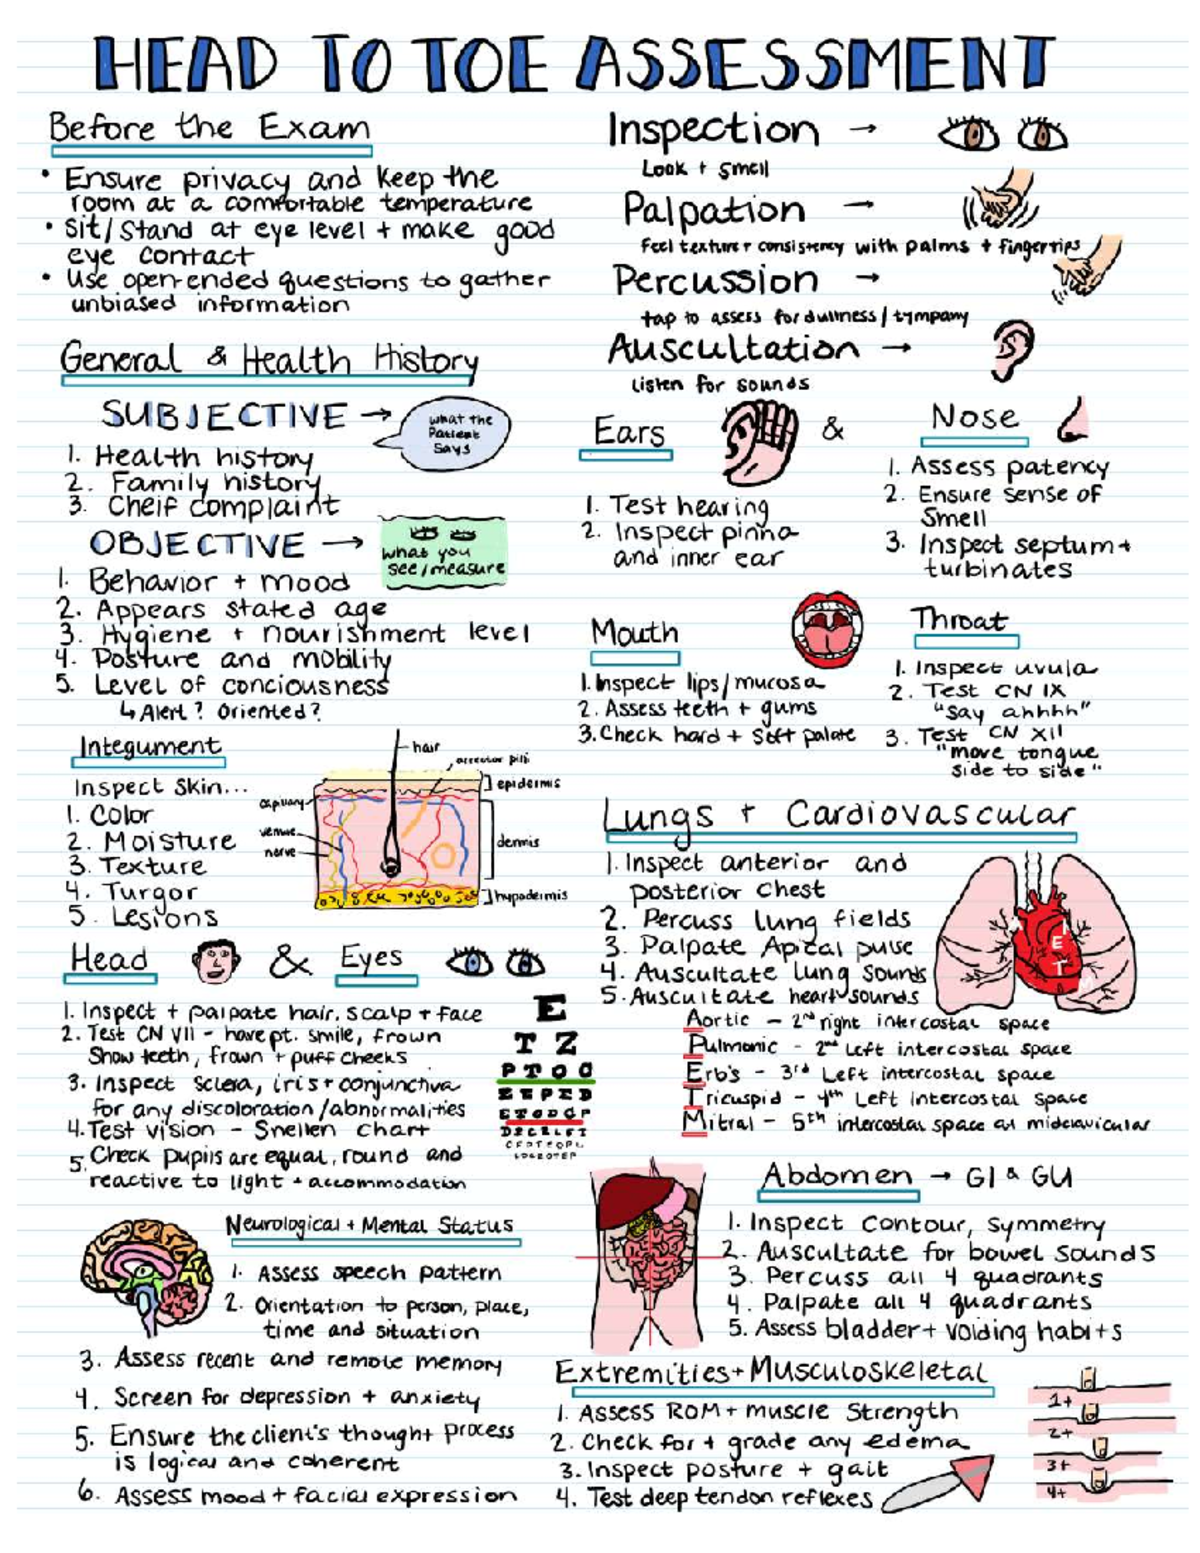 HEAD TO TOE ASSESSMENT
Before the Exam
• Ensure privacy and keep the
room at a comfortable temperature
• Sit/Stand at eye level + make good
eye contact
• Use open-ended questions to gather
unbiased information
General & Health History
SUBJECTIVE →
what the
Patient
Says
1. Health history
2. Family history
3. Cheif complaint
OBJECTIVE →
what you
see/measure
1. Behavior + mood
2. Appears stated age
3. Hygiene + nourishment level
4. Posture and mobility
5. Level of conciousness
↳ Alert? Oriented?
Integument
Inspect Skin...
1. Color
2. Moisture
3. Texture
4. Turgor
5. Lesions
hair
arrector pili
epidermis
capillary
venule
nerve
dermis
hypodermis
Head & Eyes
1. Inspect + palpate hair, scalp + face
2. Test CN VII - have pt. smile, frown
Show teeth, frown + puff cheeks
3. Inspect Sclera, iris + conjunctiva
for any discoloration/abnormalities
4. Test vision - Snellen chart
5. Check Pupils are equal, round and
reactive to light + accommodation
E
T Z
Neurological + Mental Status
1. Assess speech pattern
2. Orientation to person, place,
time and situation
3. Assess recent and remote memory
4. Screen for depression + anxiety
5. Ensure the client's thought process
is logical and coherent
6. Assess mood + facial expression
Inspection →
Look + smell
Palpation →
Feel texture + consistency with palms + fingertips
Percussion →
tap to assess for dullness/tympany
Auscultation →
Listen for sounds
Ears &
1. Test hearing
2. Inspect pinna
and inner ear
Nose
1. Assess patency
2. Ensure sense of
Smell
3. Inspect septum +
turbinates
Mouth
1. Inspect lips/mucosa
2. Assess teeth + gums
3. Check hard + soft palate
Throat
1. Inspect uvula
2. Test CN IX
"Say ahhhh"
3. Test CN XII
"move tongue
side to side"
Lungs + Cardiovascular
1. Inspect anterior and
posterior chest
2. Percuss lung fields
3. Palpate Apical pulse
4. Auscultate lung sounds
5. Auscultate heart sounds
E
T
Aortic - 2nd right intercostal space
Pulmonic - 2nd Left intercostal space
Erb's - 3rd Left intercostal space
Tricuspid - 4th Left intercostal space
Mitral - 5th intercostal space at midclavicular
Abdomen → GI & GU
1. Inspect contour, symmetry
2. Auscultate for bowel sounds
3. Percuss all 4 quadrants
4. Palpate all 4 quadrants
5. Assess bladder + voiding habits
Extremities + Musculoskeletal
1. Assess ROM + muscle strength
2. Check for + grade any edema
3. Inspect posture + gait
4. Test deep tendon reflexes
1+
2+
3+
4+